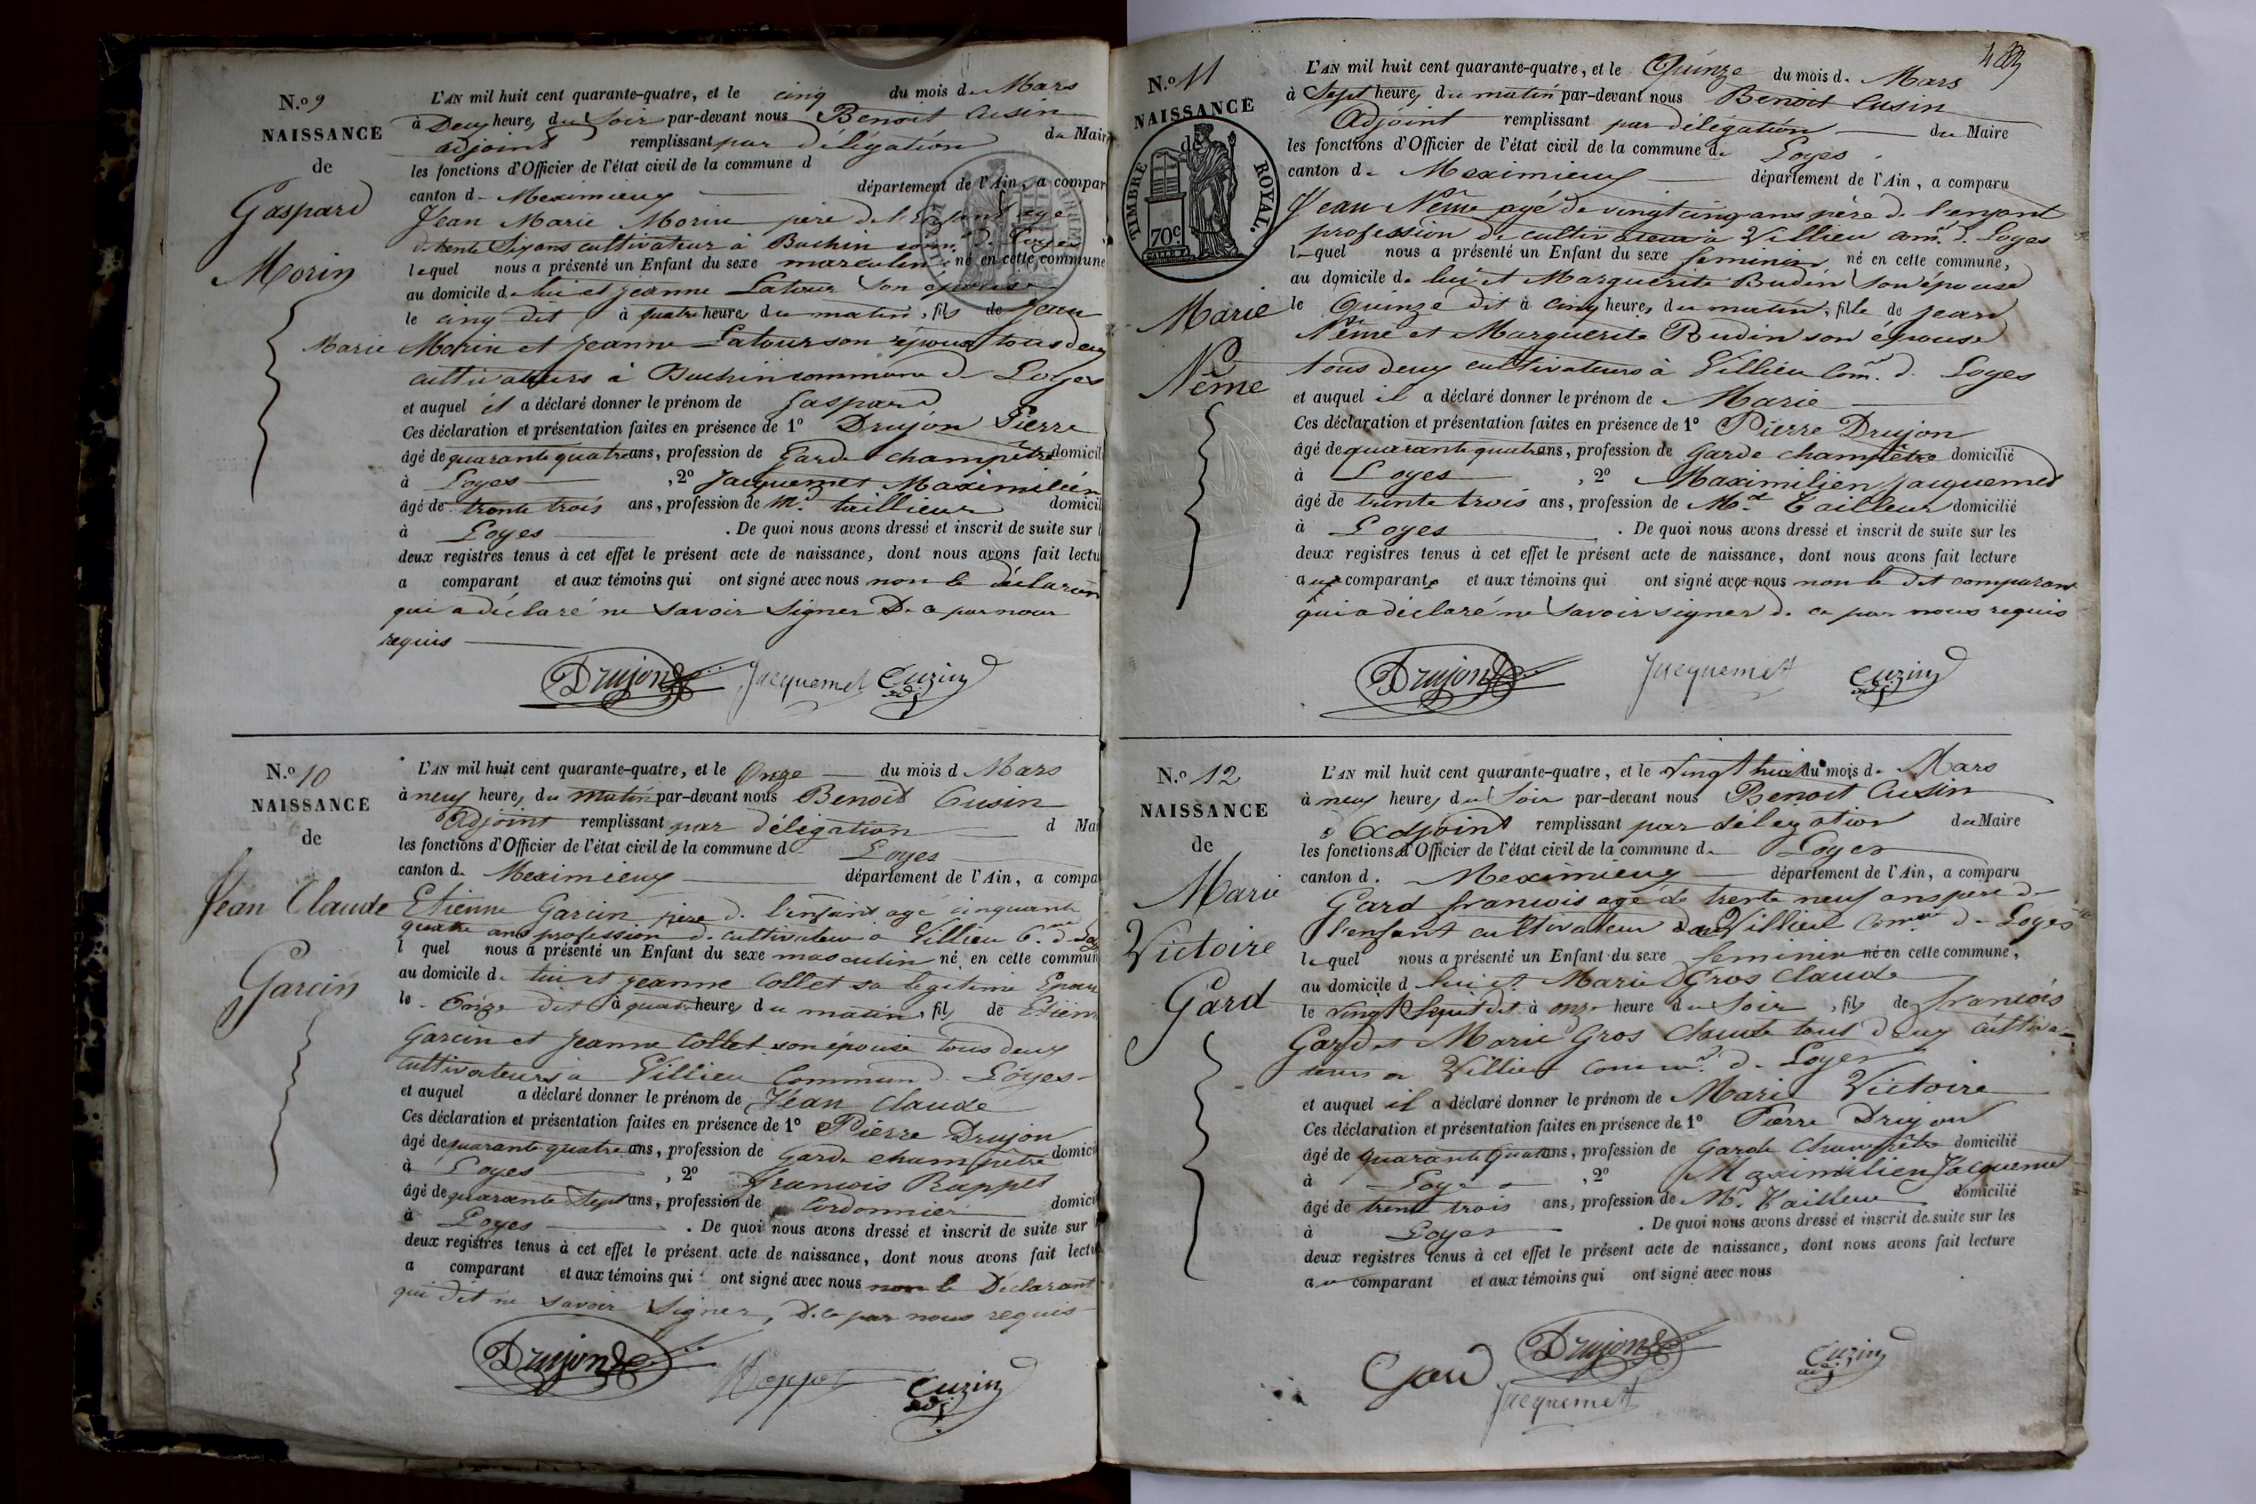 N.º 9
NAISSANCE
de
Gaspard
Morin
L'AN mil huit cent quarante-quatre, et le cinq du mois de Mars
à Deux heures du Soir par-devant nous Benoit Cusin
adjoint remplissant par délégation du Maire
les fonctions d'Officier de l'état civil de la commune d
canton d. Meximieux département de l'Ain, a compar
Jean Marie Morin père de l'Enfant agé
de trente Six ans cultivateur à Buchin com. de Loyes
lequel nous a présenté un Enfant du sexe masculin, né en cette commune
au domicile de lui et jeanne Latour Son épouse
le cinq dit à quatre heures du matin, fils de Jean
Marie Morin et Jeanne Latour son épouse tous deux
cultivateurs à Buchin commune de Loyes
et auquel il a déclaré donner le prénom de Gaspard
Ces déclaration et présentation faites en présence de 1º Drujon Pierre
âgé de quarante quatre ans, profession de Garde champêtre domicil
à Loyes , 2º Jacquemet Maximilien
âgé de trente trois ans, profession de Md. taillieur domicil
à Loyes . De quoi nous avons dressé et inscrit de suite sur l
deux registres tenus à cet effet le présent acte de naissance, dont nous avons fait lectu
a comparant et aux témoins qui ont signé avec nous non le déclarant
qui a déclaré ne savoir signer De ce par nous
requis
Drujon Jacquemet Cuzin
adj
N.º 10
NAISSANCE
de
Jean Claude
Garcin
L'AN mil huit cent quarante-quatre, et le Onze du mois d Mars
à neuf heures du matin par-devant nous Benoit Cusin
Adjoint remplissant par délégation d Mai
les fonctions d'Officier de l'état civil de la commune d Loyes
canton d. Meximieux département de l'Ain, a compa
Etienne Garcin père de l'enfant agé cinquante
quatre ans profession de cultivateur a Villieu C. de Loy
l quel nous a présenté un Enfant du sexe masculin né en cette commun
au domicile de lui et jeanne Collet sa légitime Epouse
le Onze dit à quatre heures du matin, fils de Etienn
Garcin et Jeanne Collet son épouse tous deux
cultivateurs a Villieu Commun de Loyes
et auquel a déclaré donner le prénom de Jean Claude
Ces déclaration et présentation faites en présence de 1º Pierre Drujon
âgé de quarante quatre ans, profession de Garde champêtre domici
à Loyes , 2º Francois Rappet
âgé de quarante Sept ans, profession de Cordonnier domici
à Loyes . De quoi nous avons dressé et inscrit de suite sur l
deux registres tenus à cet effet le présent acte de naissance, dont nous avons fait lectu
a comparant et aux témoins qui ont signé avec nous non le Déclarant
qui dit ne savoir Signer, De ce par nous requis
Drujon Rappet Cuzin
adj
N.º 11
NAISSANCE
d
TIMBRE ROYAL.
70c
Marie
Nême
L'AN mil huit cent quarante-quatre, et le Quinze du mois d. Mars
à Sept heures du matin par-devant nous Benoit Cusin
Adjoint remplissant par délégation du Maire
les fonctions d'Officier de l'état civil de la commune de Loyes
canton d. Meximieux département de l'Ain, a comparu
Jean Nême agé de vingt cinq ans père de l'enfant
profession de cultivateur à Villieu com. d. Loyes
lequel nous a présenté un Enfant du sexe feminin né en cette commune,
au domicile de lui et Marguerite Budin Son épouse
le Quinze dit à cinq heures du matin, fille de jean
Nême et Marguerite Budin son épouse
tous deux cultivateurs à Villieu Com. d. Loyes
et auquel il a déclaré donner le prénom de Marie
Ces déclaration et présentation faites en présence de 1º Pierre Drujon
âgé de quarante quatre ans, profession de Garde champêtre domicilié
à Loyes , 2º Maximilien Jacquemet
âgé de trente trois ans, profession de Md. Tailleur domicilié
à Loyes . De quoi nous avons dressé et inscrit de suite sur les
deux registres tenus à cet effet le présent acte de naissance, dont nous avons fait lecture
aux comparants et aux témoins qui ont signé avec nous non le dit comparant
qui a déclaré ne Savoir signer de ce par nous requis
Drujon Jacquemet Cuzin
adj
N.º 12
NAISSANCE
de
Marie
Victoire
Gard
L'AN mil huit cent quarante-quatre, et le vingt huit du mois d. Mars
à neuf heures du Soir par-devant nous Benoit Cusin
Adjoint remplissant par délégation du Maire
les fonctions d'Officier de l'état civil de la commune d. Loyes
canton d. Meximieux département de l'Ain, a comparu
Gard francois agé de trente neuf ans père de
l'enfant cultivateur Villieu Com. de Loyes
lequel nous a présenté un Enfant du sexe feminin né en cette commune,
au domicile d lui et Marie Gros Claude
le vingt Sept dit à onze heure du Soir , fils de francois
Gard et Marie Gros Claude tout deux cultiva-
teurs a Villieu Comm. de Loyes
et auquel il a déclaré donner le prénom de Marie Victoire
Ces déclaration et présentation faites en présence de 1º Pierre Drujon
âgé de quarante quatre ans, profession de Garde Champêtre domicilié
à Loyes , 2º Maximilien Jacquemet
âgé de trente trois ans, profession de Md. Tailleur domicilié
à Loyes . De quoi nous avons dressé et inscrit de suite sur les
deux registres tenus à cet effet le présent acte de naissance, dont nous avons fait lecture
au comparant et aux témoins qui ont signé avec nous
Gard Drujon Cuzin
adj
Jacquemet